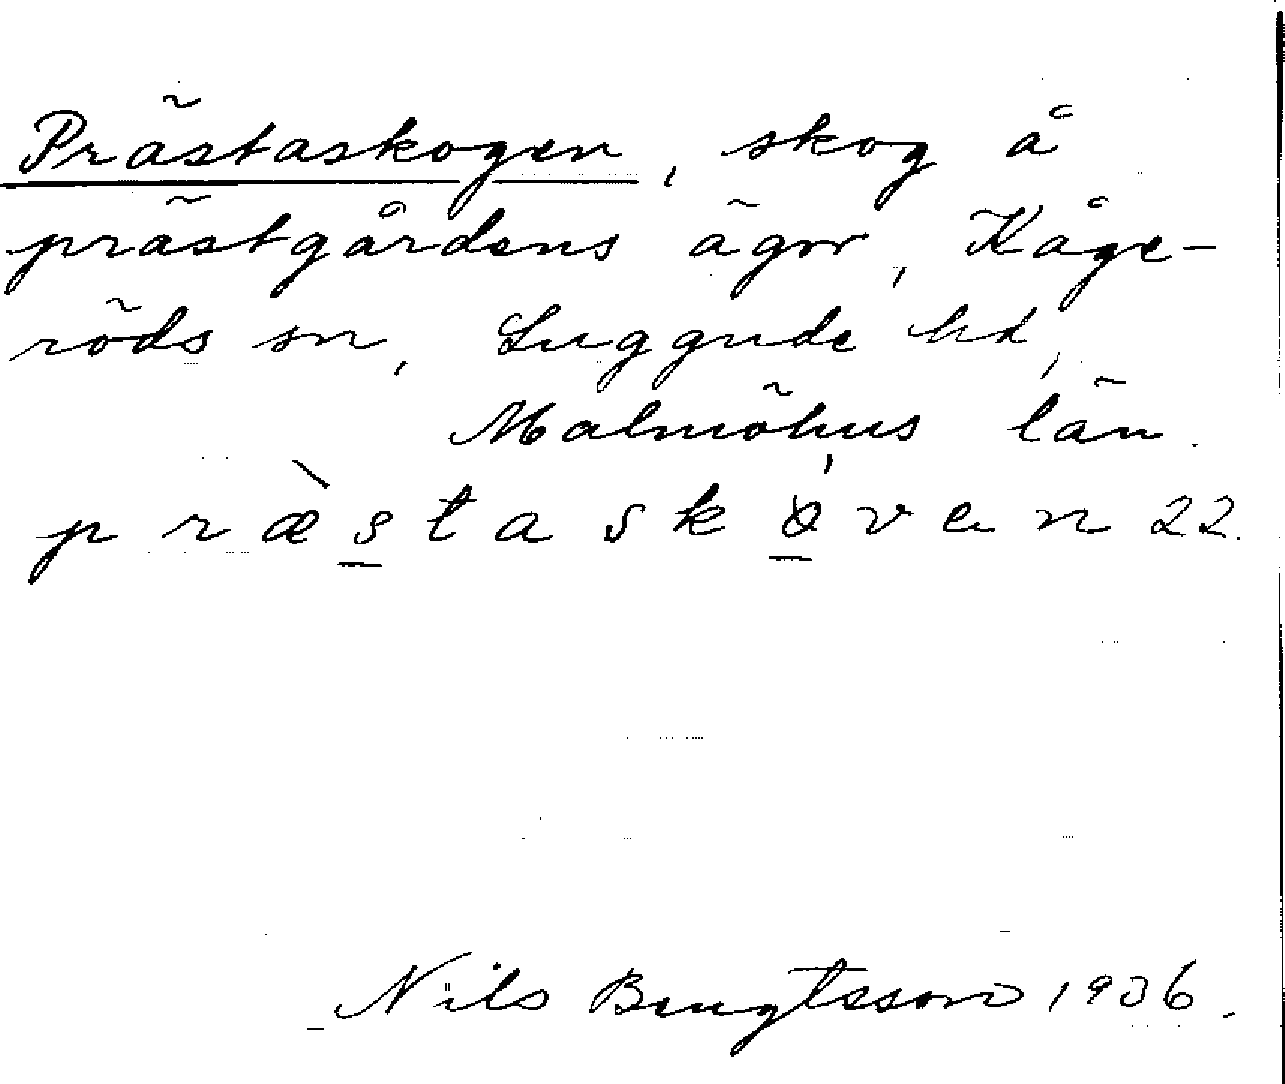 Prästaskogen, skog å
prästgårdens ägor, Kåge-
röds sn, Luggude hd,
Malmöhus län.
præ̀s̲taskø̲̍ven 22.
Nils Bengtsson 1936.